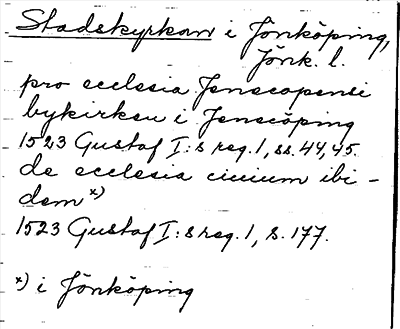 Stadskyrkan i Jönköping,
Jönk. l.
pro ecclesia Jenscopensi
bykirken i Jenscöping
1523 Gustaf I:s reg. 1, ss. 44, 45.
de ecclesia ciuium ibi-
dem x)
1523 Gustaf I:s reg. 1, s. 177.
x) i Jönköping